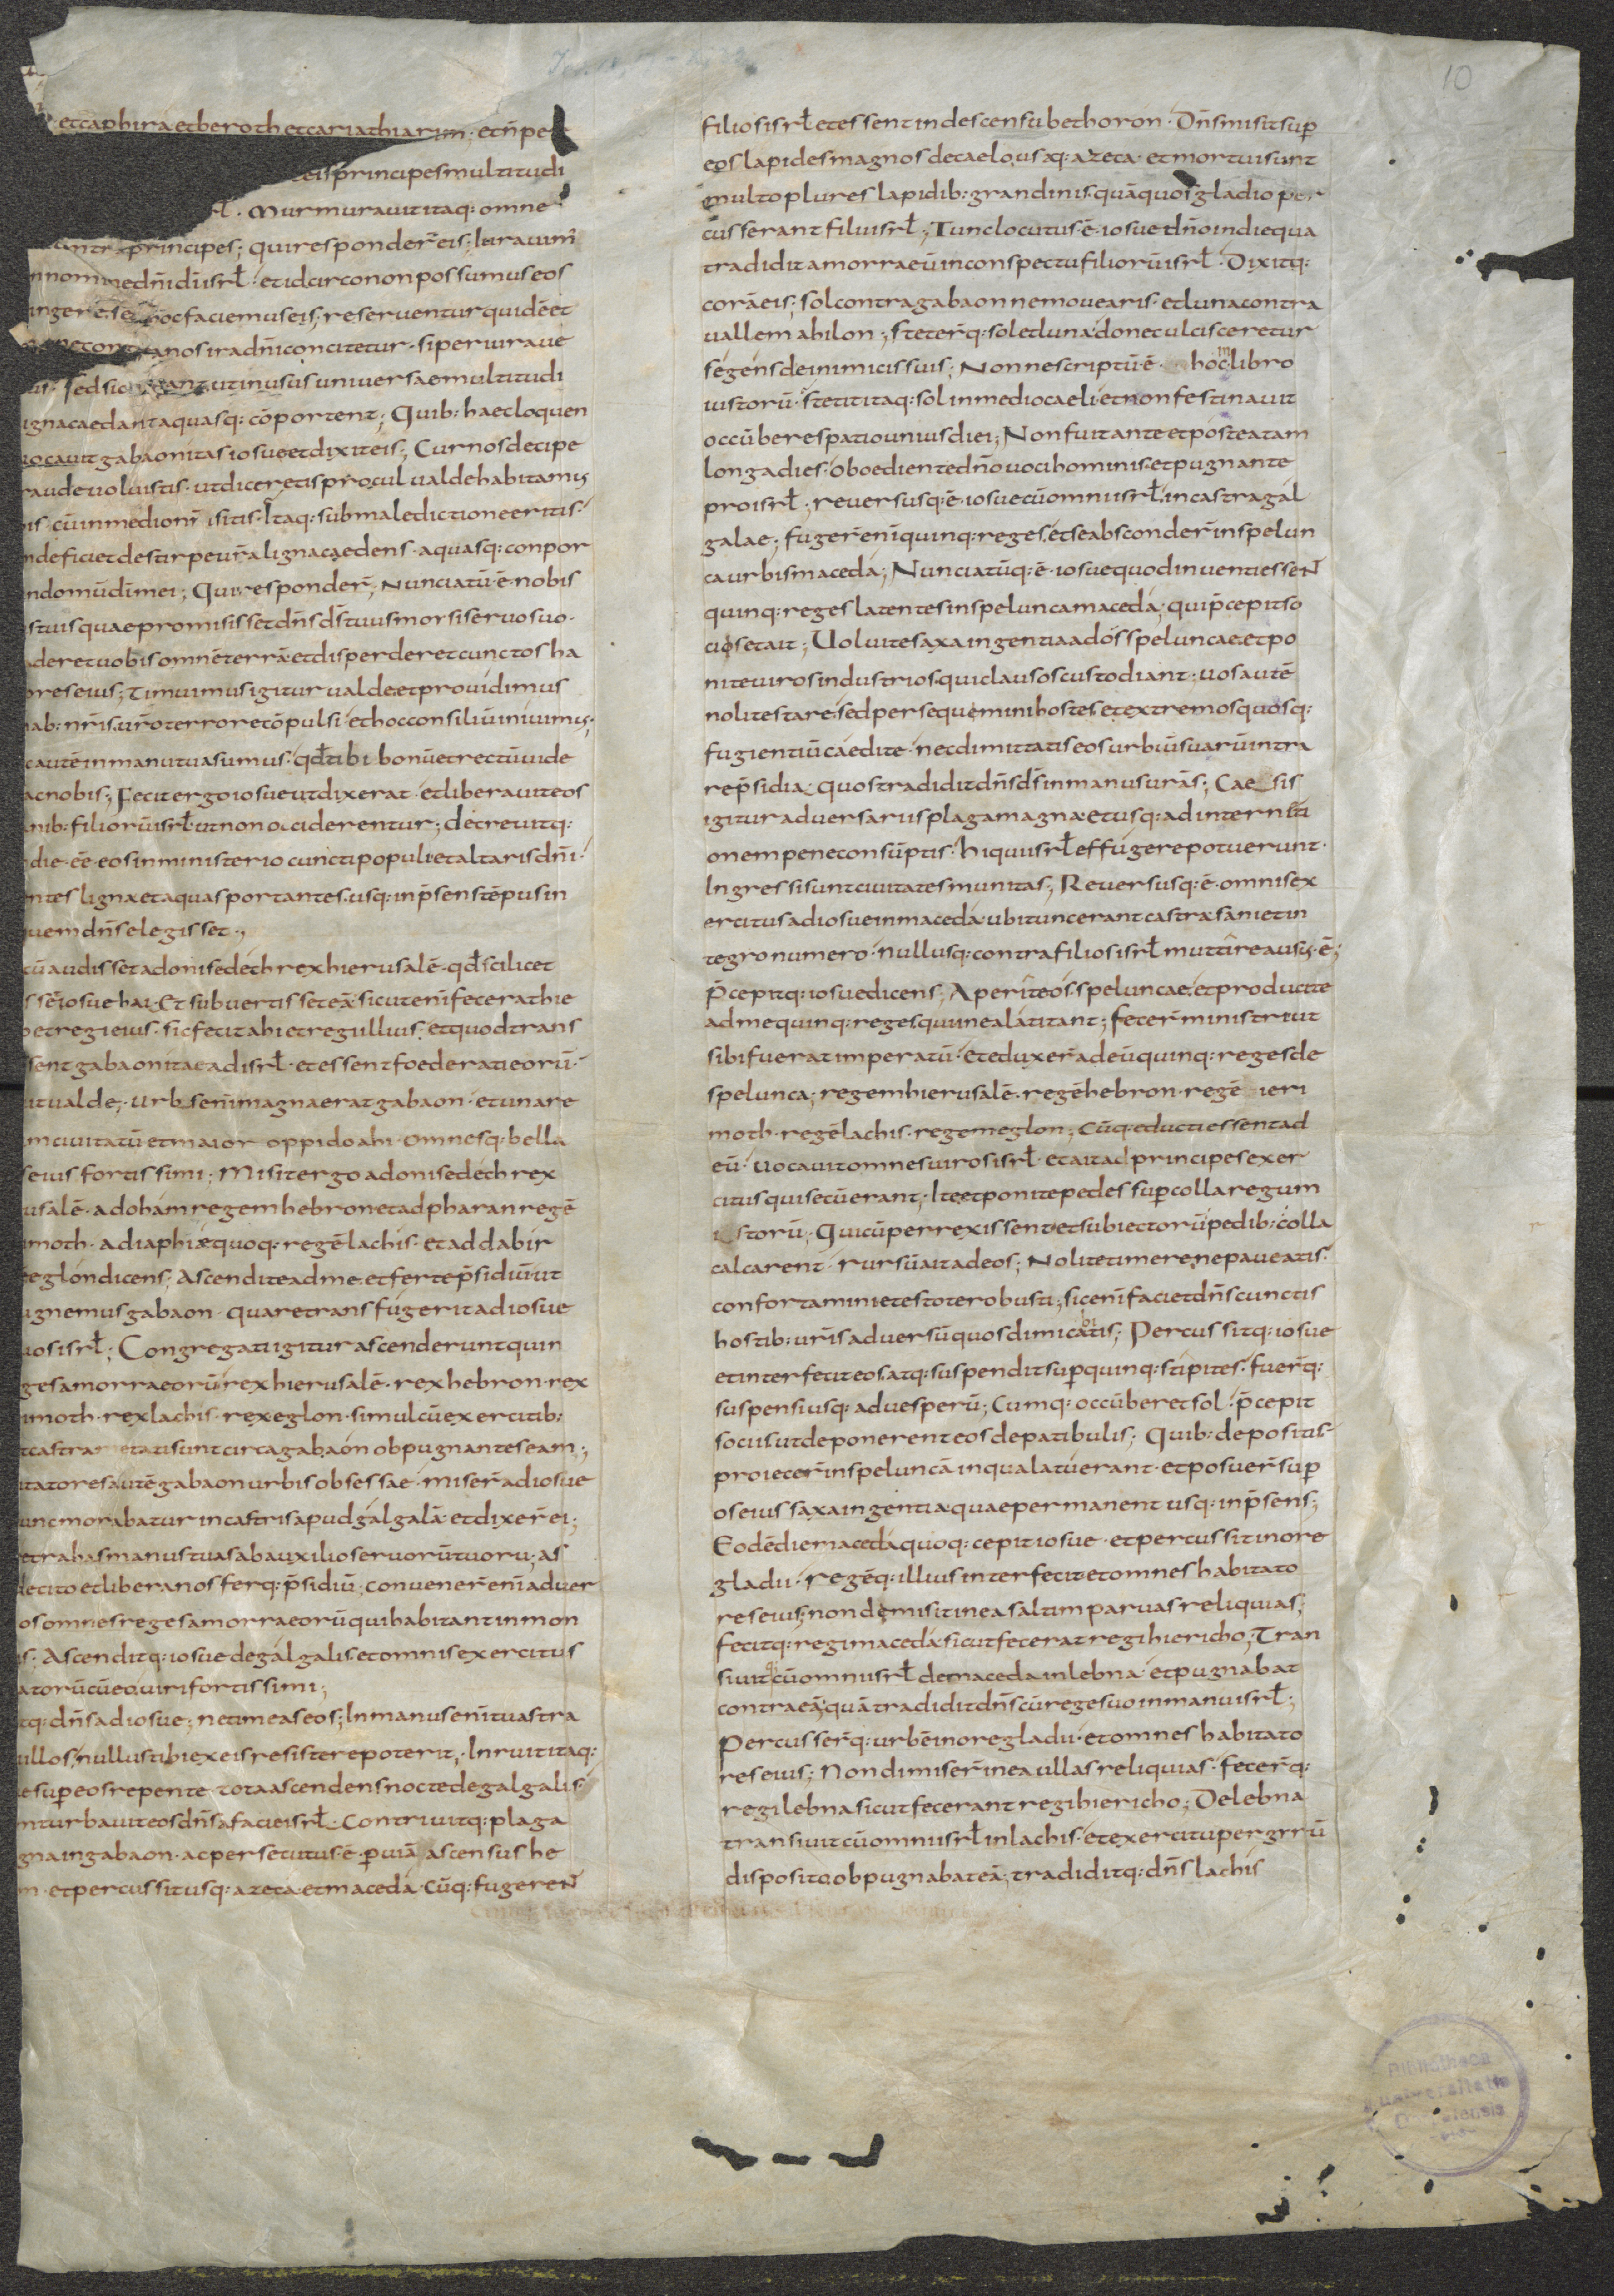 10
et caphira et beroth et cariathiarim · et n̄ per
eis principes multitudi
rł · Murmuravit itaq: omne
principes; qui responder̄ eis; Iuravim᷒
nnomine dn̄i dī isrł · et idcirco non possumus eos
ingere · sed hoc faciemus eis; reserventur quidē et
nos ira dn̄i concitetur · si peiurave
us · sed sic vivant ut in usus universae multitudi
igna caedant aquasq: cōportent; Quib: haec loquen
vocavit gabaonitas iosue et dixit eis; Cur nos decipe
raude voluistis · ut diceretis procul valde habitamus
is · cū in medio nr̄i sitis · Itaq: sub maledictione eritis ·
n deficiet de stirpe vr̄a ligna caedens · aquasq: conpor
n domū dī mei; Qui responder̄; Nunciatū ē nobis
s tuis quae promisisset dn̄s ds̄ tuus morsi servo suo ·
aderet vobis omnē terrā · et disperderet cunctos ha
ores eius; Timuimus igitur valde et providimus
ab: nr̄is · vr̄o terrore cōpulsi · et hoc consiliū inivimus;
c autē in manu tua sumus · qđ tibi bonū et rectū vide
ac nobis; Fecit ergo iosue ut dixerat · et liberavit eos
anib: filiorū isrł · ut non occiderentur; decrevitq:
die · ēē eos in ministerio cuncti populi · et altaris dn̄i ·
ntes ligna et aquas portantes · usq: in p̄sens tēpus in
uem dn̄s elegisset ·,
cū audisset adonisedech rex hierusalē · qđ scilicet
ssē iosue hai · Et subvertisset eā · sicut enī fecerat hie
o et regi eius · sic fecit ahi et regi illius · et quod trans
sent gabaonitae ad isrł · et essent foederati eorū ·
it valde; urbs enī magna erat gabaon · et una re
m civitatū et maior oppido ahi · omnesq: bella
s eius fortissimi; Misit ergo adonisedech rex
usalē · ad oham regem hebron · et ad pharan regē
imoth · ad iaphiae quoq: regē lachis · et ad dabir
eglon dicens; Ascendite ad me · et ferte p̄sidiū · ut
ugnemus gabaon · quare transfugerit ad iosue
ios isrł; Congregati igitur ascenderunt quin
ges amorraeorū · rex hierusalē · rex hebron · rex
imoth · rex lachis · rex eglon · simul cū exercitib:
t castrametati sunt circa gabaon obpugnantes eam;
itatores autē gabaon urbis obsessae · miser̄ ad iosue
unc morabatur in castris apud galgalā · et dixer̄ ei;
etrahas manus tuas ab auxilio servorū tuorū; as
de cito et libera nos ferq: p̄sidiū; convener̄ enī adver
os omnes reges amorraeorū qui habitant in mon
is; Ascenditq: iosue de galgalis · et omnis exercitus
atorū cū eo · viri fortissimi;
tq: dn̄s ad iosue; ne timeas eos; In manus enī tuas tra
illos; nullus tibi ex eis resistere poterit; Inruit itaq:
e sup̄ eos repente · tota ascendens nocte de galgalis ·
nturbavit eos dn̄s a facie isrł · Contrivitq: plaga
gna in gabaon · ac persecutus ē p̄ viā ascensus be
n · et percussit usq: azeca et maceda · Cūq: fugereN̄
filios isrł et essent in descensu bethoron · Dn̄s misit sup̄
eos lapides magnos de caelo usq: azeca · et mortui sunt
multo plures lapidib: grandinis · quā quos gladio per
cusserant filii isrł; Tunc locutus ē iosue dn̄o in die qua
tradidit amorraeū in conspectu filiorū isrł · Dixitq:
corā eis; sol contra gabaon ne movearis · et luna contra
vallem ahilon; steter̄q: sol et luna · donec ulcisceretur
se gens de inimicis suis; Nonne scriptū ē in hoc libro
iustorū · stetit itaq: sol in medio caeli · et non festinavit
occūbere spatio unius diei; Non fuit ante et postea tam
longa dies · oboediente dn̄o voci hominis · et pugnante
pro isrł; reversusq: ē iosue cū omni isrł in castra gal
galae; fuger̄ enī quinq: reges · et se absconder̄ in spelun
ca urbis maceda; Nunciatūq: ē iosue quod inventi esseN̄
quinq: reges latentes in spelunca maceda; qui p̄cepit so
ciis et ait; Volvite saxa ingentia ad os speluncae · et po
nite viros industrios qui clausos custodiant; vos autē
nolite stare · sed persequemini hostes · et extremos quosq:
fugientiū caedite · nec dimittatis eos urbiū suarū intra
re p̄sidia · quos tradidit dn̄s ds̄ in manus vr̄as; Caesis
igitur adversariis plaga magna · et usq: ad interniti
onem pene consūptis · hi qui isrł effugere potuerunt ·
Ingressi sunt civitates munitas; Reversusq: ē omnis ex
ercitus ad iosue in maceda ubi tunc erant castra · sani et in
tegro numero · nullusq: contra filios isrł muttire ausus ē;
P̄cepitq: iosue dicens; Aperite os speluncae · et producite
ad me quinq: reges qui in ea latitant; fecer̄ ministri ut
sibi fuerat imperatū · et eduxer̄ ad eū quinq: reges de
spelunca; regem hierusalē · regē hebron · regē hieri
moth · regē lachis · regem eglon; Cūq: educti essent ad
eū · vocavit omnes viros isrł · et ait ad principes exer
citus qui secū erant; Ite et ponite pedes sup̄ colla regum
istorū; Qui cū perrexissent · et subiectorū pedib: colla
calcarent · rursū ait ad eos; Nolite timere · ne paveatis ·
confortamini et estote robusti; sic enī faciet dn̄s cunctis
hostib: vr̄is adversū quos dimicabitis; Percussitq: iosue
et interfecit eos · atq: suspendit sup̄ quinq: stipites · fuer̄q:
suspensi usq: ad vesperū; Cumq: occūberet sol · p̄cepit
sociis ut deponerent eos de patibulis; Quib: depositis ·
proiecer̄ in speluncā in qua latuerant · et posuer̄ sup̄
os eius saxa ingentia · quae permanent usq: in p̄sens;
Eodē die maceda quoq: cepit iosue · et percussit in ore
gladii · regēq: illius interfecit · et omnes habitato
res eius; non demisit in ea saltim parvas reliquias;
fecitq: regi maceda · sicut fecerat regi hiericho; Tran
sivit cū omni isrł de maceda in lebna · et pugnabat
contra eā · quā tradidit dn̄s cū rege suo in manu isrł;
Percusser̄q: urbē in ore gladii · et omnes habitato
res eius; Non dimiser̄ in ea ullas reliquias · fecer̄q:
regi lebna sicut fecerant regi hiericho; De lebna
transivit cū omni isrł in lachis · et exercitu per grrū
disposito obpugnabat eā; tradiditq: dn̄s lachis
Bibliotheca
universitatis